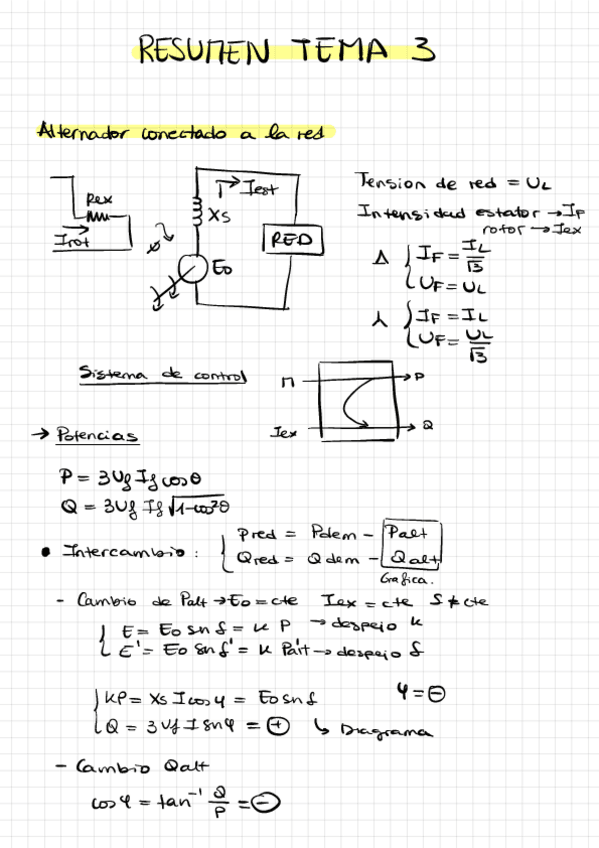 RESUMEN TEMA 3
Alternador conectado a la red
Rex
Irot
Iest
Xs
ϕ
E0
RED
Tension de red = UL
Intensidad estator → IF
rotor → Iex
Δ { IF = IL/√3
UF = UL
⅄ { IF = IL
UF = UL/√3
Sistema de control
Π → P
Iex → Q
→ Potencias
P = 3Uf If cos θ
Q = 3Uf If √1-cos²θ
• Intercambio: { Pred = Pdem - Palt
Qred = Qdem - Qalt
Grafica.
- Cambio de Palt → E0 = cte Iex = cte δ ≠ cte
{ E = E0 sn δ = K P → despejo K
E' = E0 sn δ' = K Palt → despejo δ
{ KP = Xs I cos φ = E0 sn δ φ = ⊖
Q = 3 Uf I sn φ = ⊕ ↳ Diagrama
- Cambio Qalt
cos φ = tan⁻¹ Q/P = ⊖